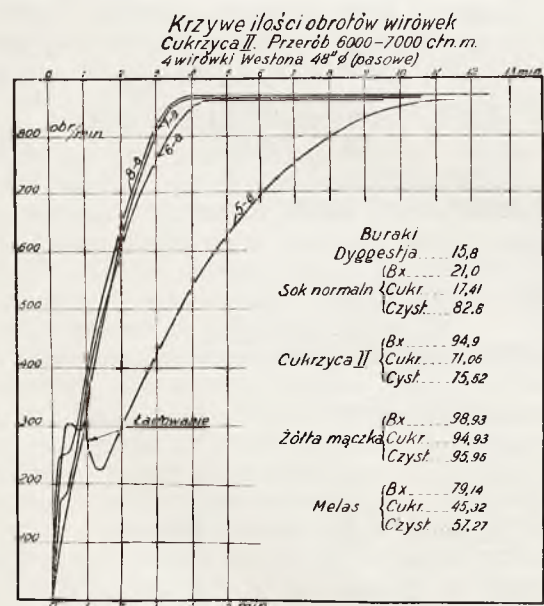 Krzywe ilości obrotów wirówek
Cukrzyca II. Przerób 6000-7000 ctn.m.
4 wirówki Westona 48"ϕ (pasowe)
0 1 2 3 4 5 6 7 8 9 10 11 min
obr/min
800
700
600
500
400
300
200
100
8-a
7-a
6-a
5-a
Ładowanie
Buraki
Dyggestja 15,8
Sok normaln
Bx 21,0
Cukr. 17,41
Czyst. 82.8
Cukrzyca II
Bx 94,9
Cukr. 71,06
Cyst. 75,52
Żółta mączka
Bx 98,93
Cukr. 94,93
Czyst. 95,96
Melas
Bx 79,14
Cukr. 45,32
Czyst. 57,27